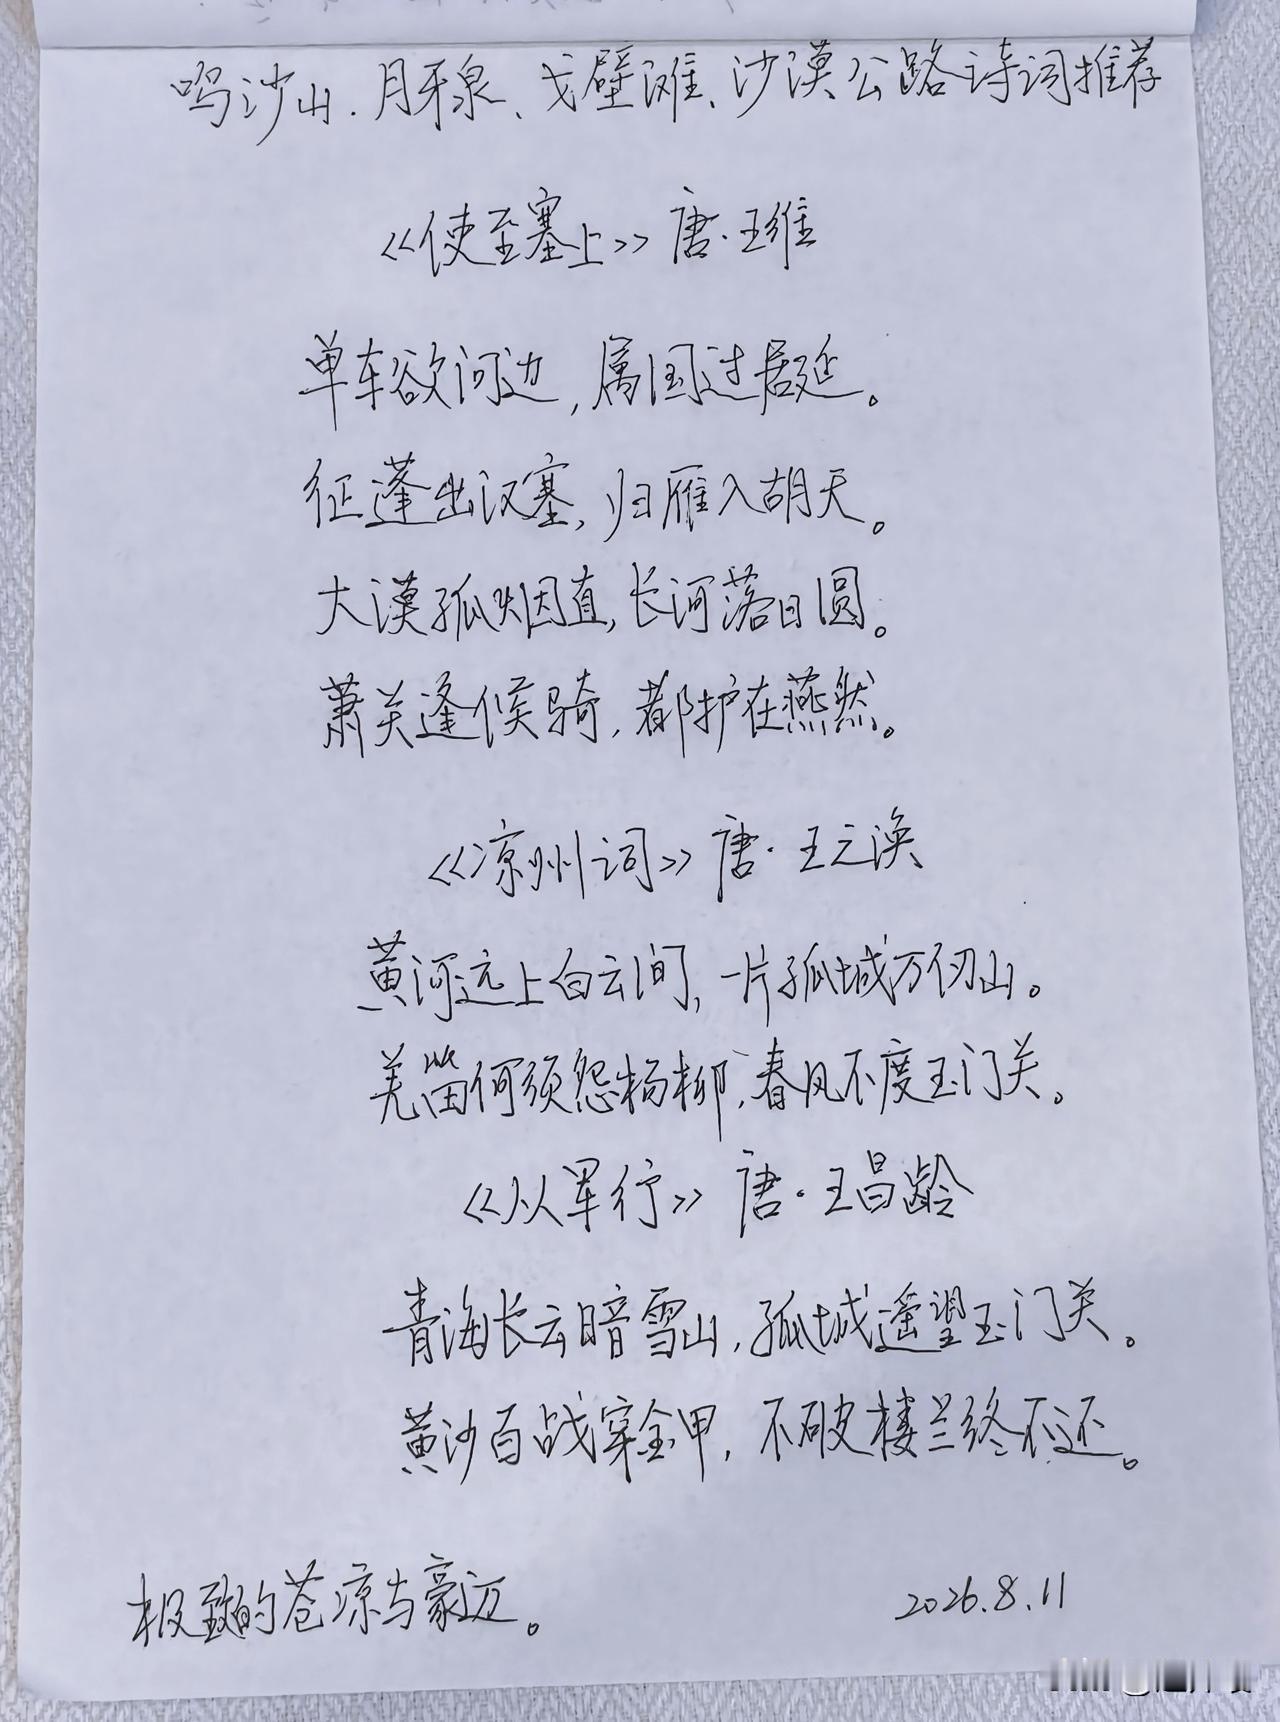 鸣沙山.月牙泉、戈壁滩、沙漠公路诗词推荐
《使至塞上》唐·王维
单车欲问边,属国过居延。
征蓬出汉塞,归雁入胡天。
大漠孤烟直,长河落日圆。
萧关逢候骑,都护在燕然。
《凉州词》唐·王之涣
黄河远上白云间,一片孤城万仞山。
羌笛何须怨杨柳,春风不度玉门关。
《从军行》唐·王昌龄
青海长云暗雪山,孤城遥望玉门关。
黄沙百战穿金甲,不破楼兰终不还。
极致的苍凉与豪迈。
2026.8.11